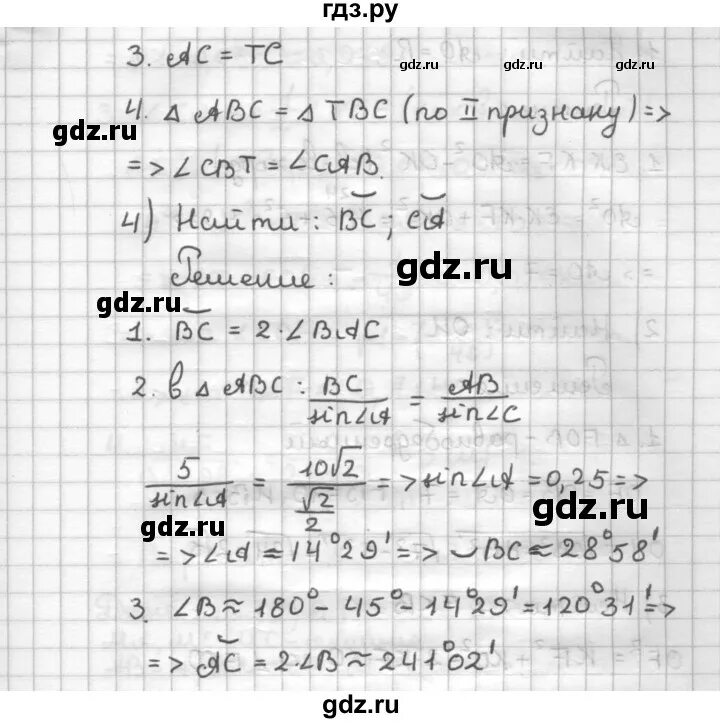 гдз.ру
3. AC = TC
gdz.ru gdz.ru
4. △ ABC = △ TBC (по II признаку) =>
gdz.ru
=> ∠CBT = ∠CAB.
4) Найти: ◡BC; ◡CA
Решение:
gdz.ru
gdz.ru
1. ◡BC = 2·∠BAC
gdz.ru
2. В △ ABC: BC/sin∠A = AB/sin∠C
5/sin∠A = 10√2/(√2/2) => sin∠A = 0,25 =>
gdz.ru
gdz.ru
=> ∠A ≈ 14°29' => ◡BC ≈ 28°58'
3. ∠B ≈ 180° - 45° - 14°29' = 120°31' =>
=> ◡AC = 2·∠B ≈ 241°02'
gdz.ru gdz.ru
gdz.ru